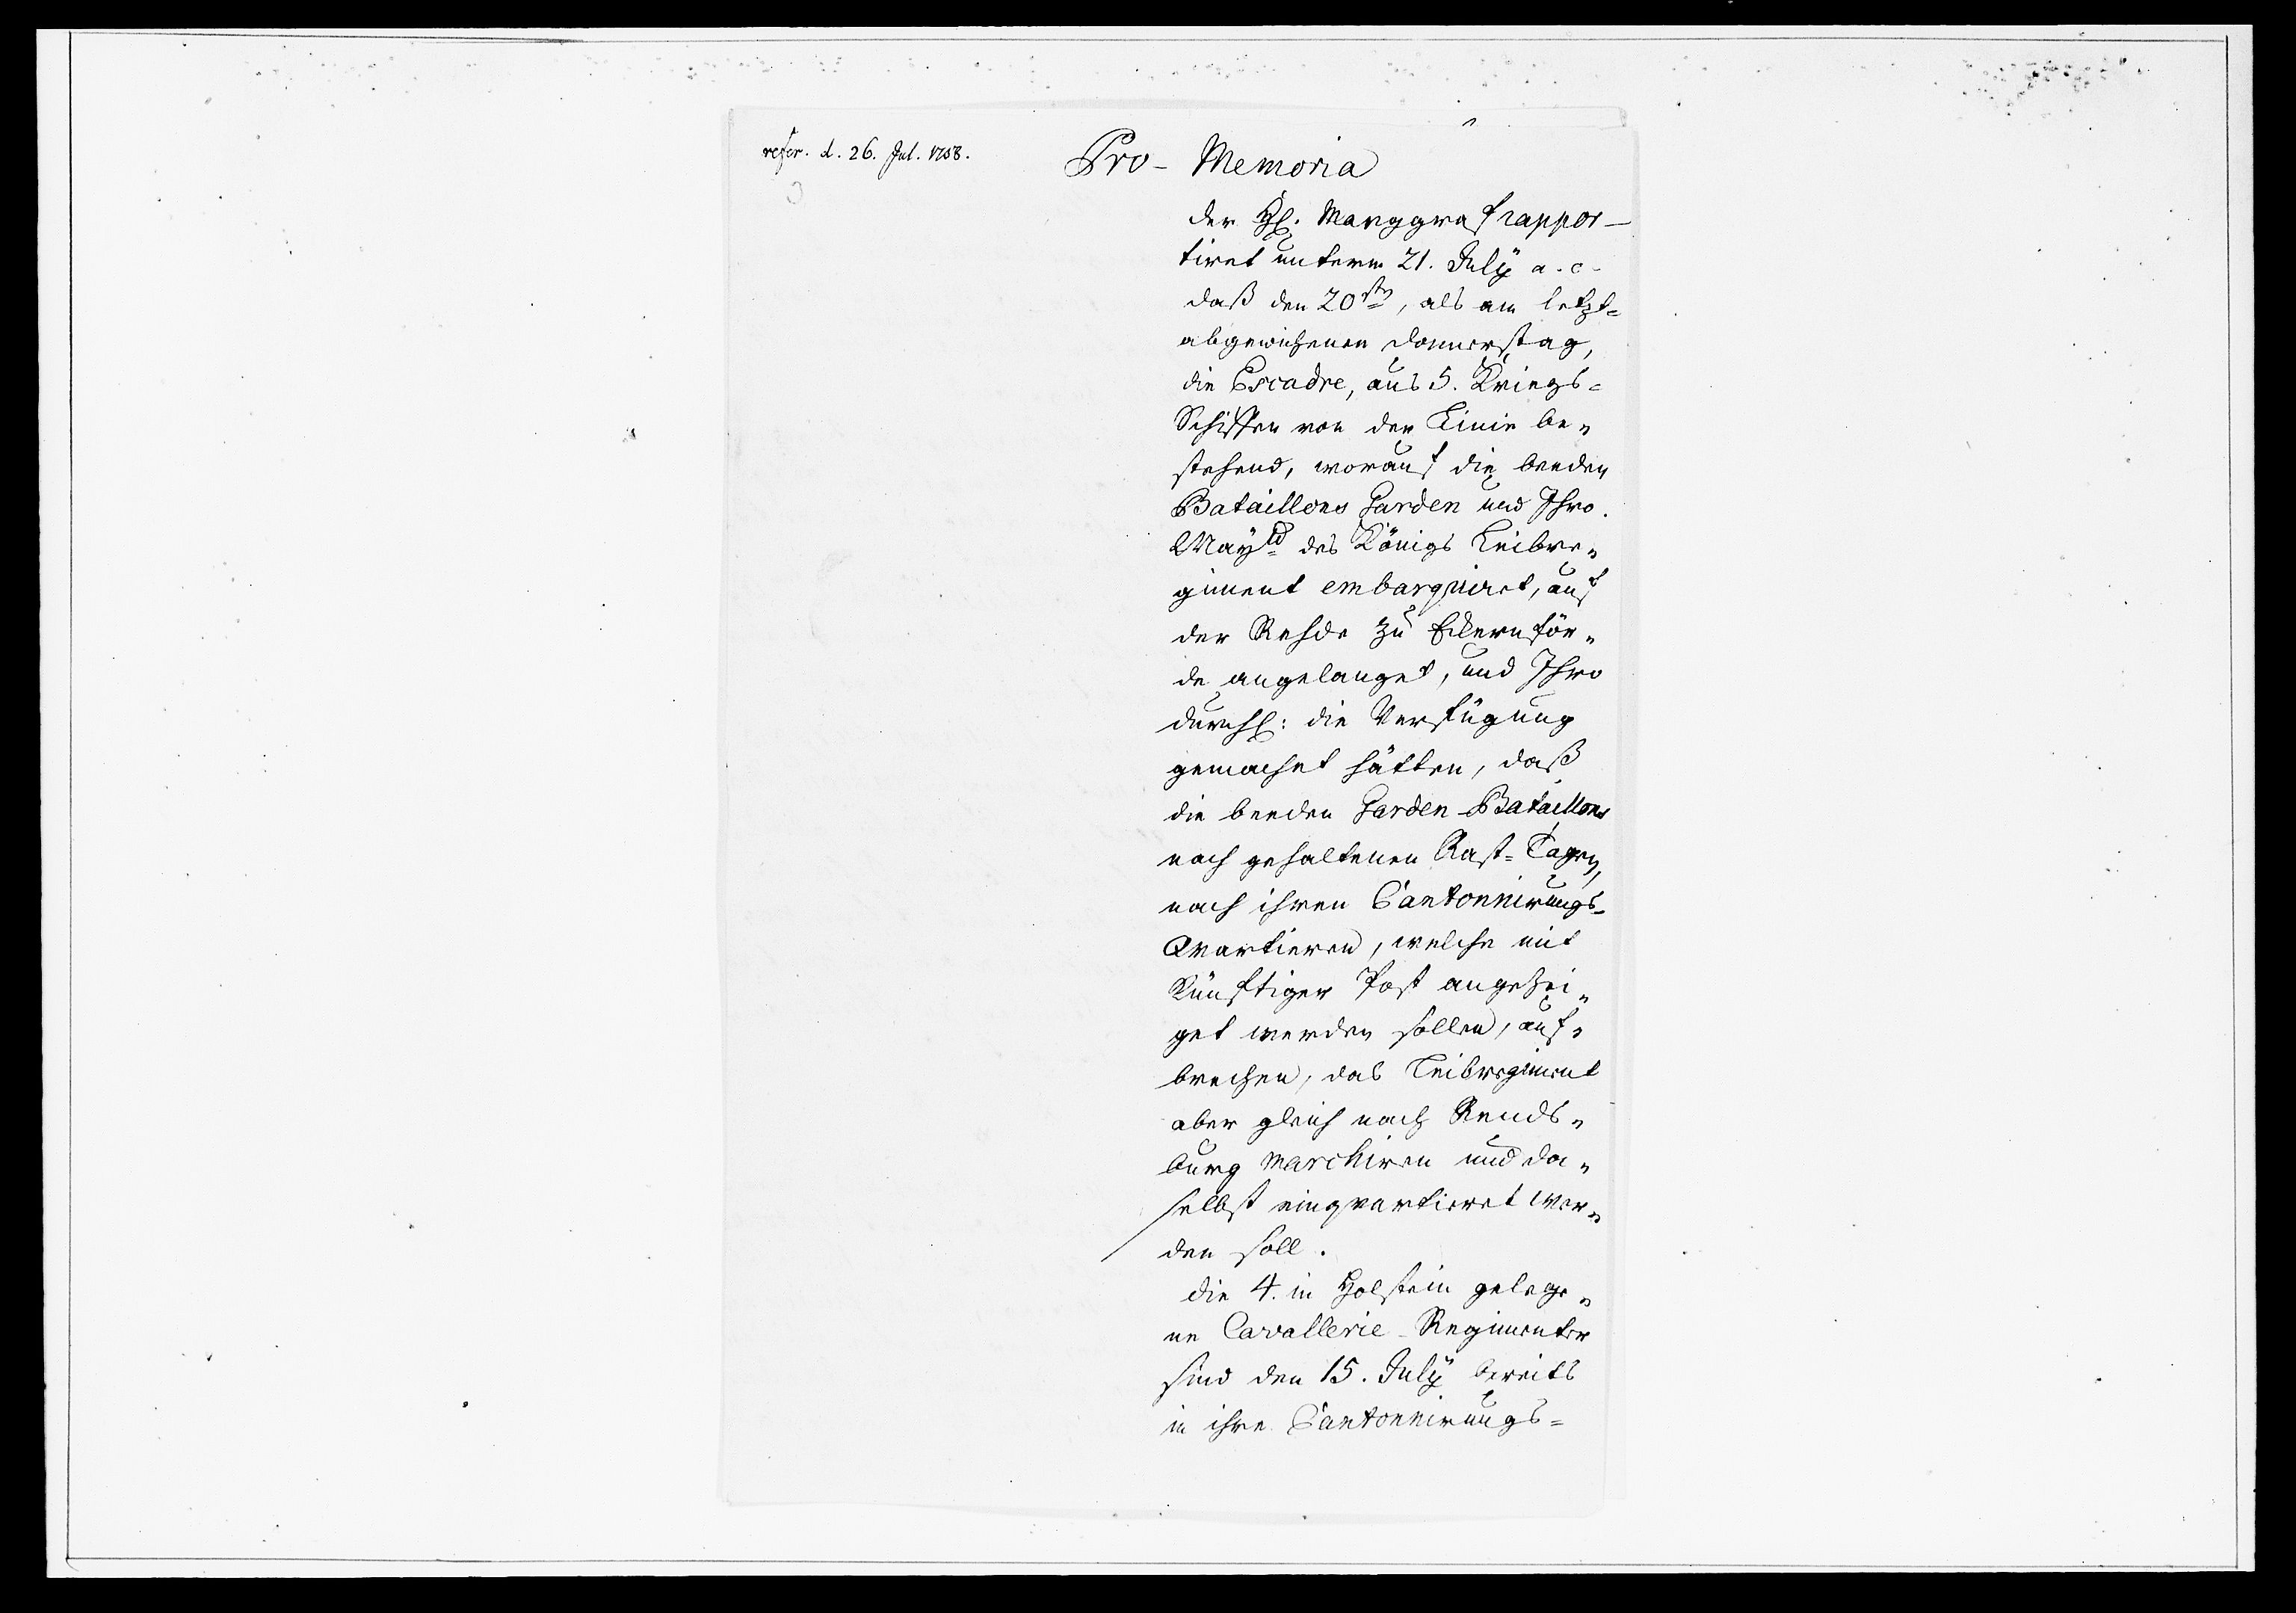 refer. d. 26. Jul. 1758.
Pro-Memoria
der H. Marggraf rappor-
tiret unterm 21. Julÿ a. c.
daß den 20ten, als am letzt=
abgewichenen Donnerstag,
die Escadre, aus 5. Kriegs=
Schiffen von der Linie be„
stehend, worauf die beeden
Bataillons Garden und Ihro.
Mayt des Königs Leibre„
giment embarquirt, auf
der Rehde zu Eckernför„
de angelanget, und Ihro
Durchl: die Verfügung
gemachet hätten, daß
die beeden Garden-Bataillons
nach gehaltenen Rast=Tagen,
nach ihren Cantonnirungs-
Qvartieren, welche mit
künftiger Post angezei„
get werden sollen, auf„
brechen, das Leibregiment
aber gleich nach Rends„
burg marchiren und da„
selbst einqvartieret wer„
den soll.
die 4. in Holstein gelege„
ne Cavallerie-Regimenter
sind den 15. Julÿ bereits
in ihre Cantonnirungs=